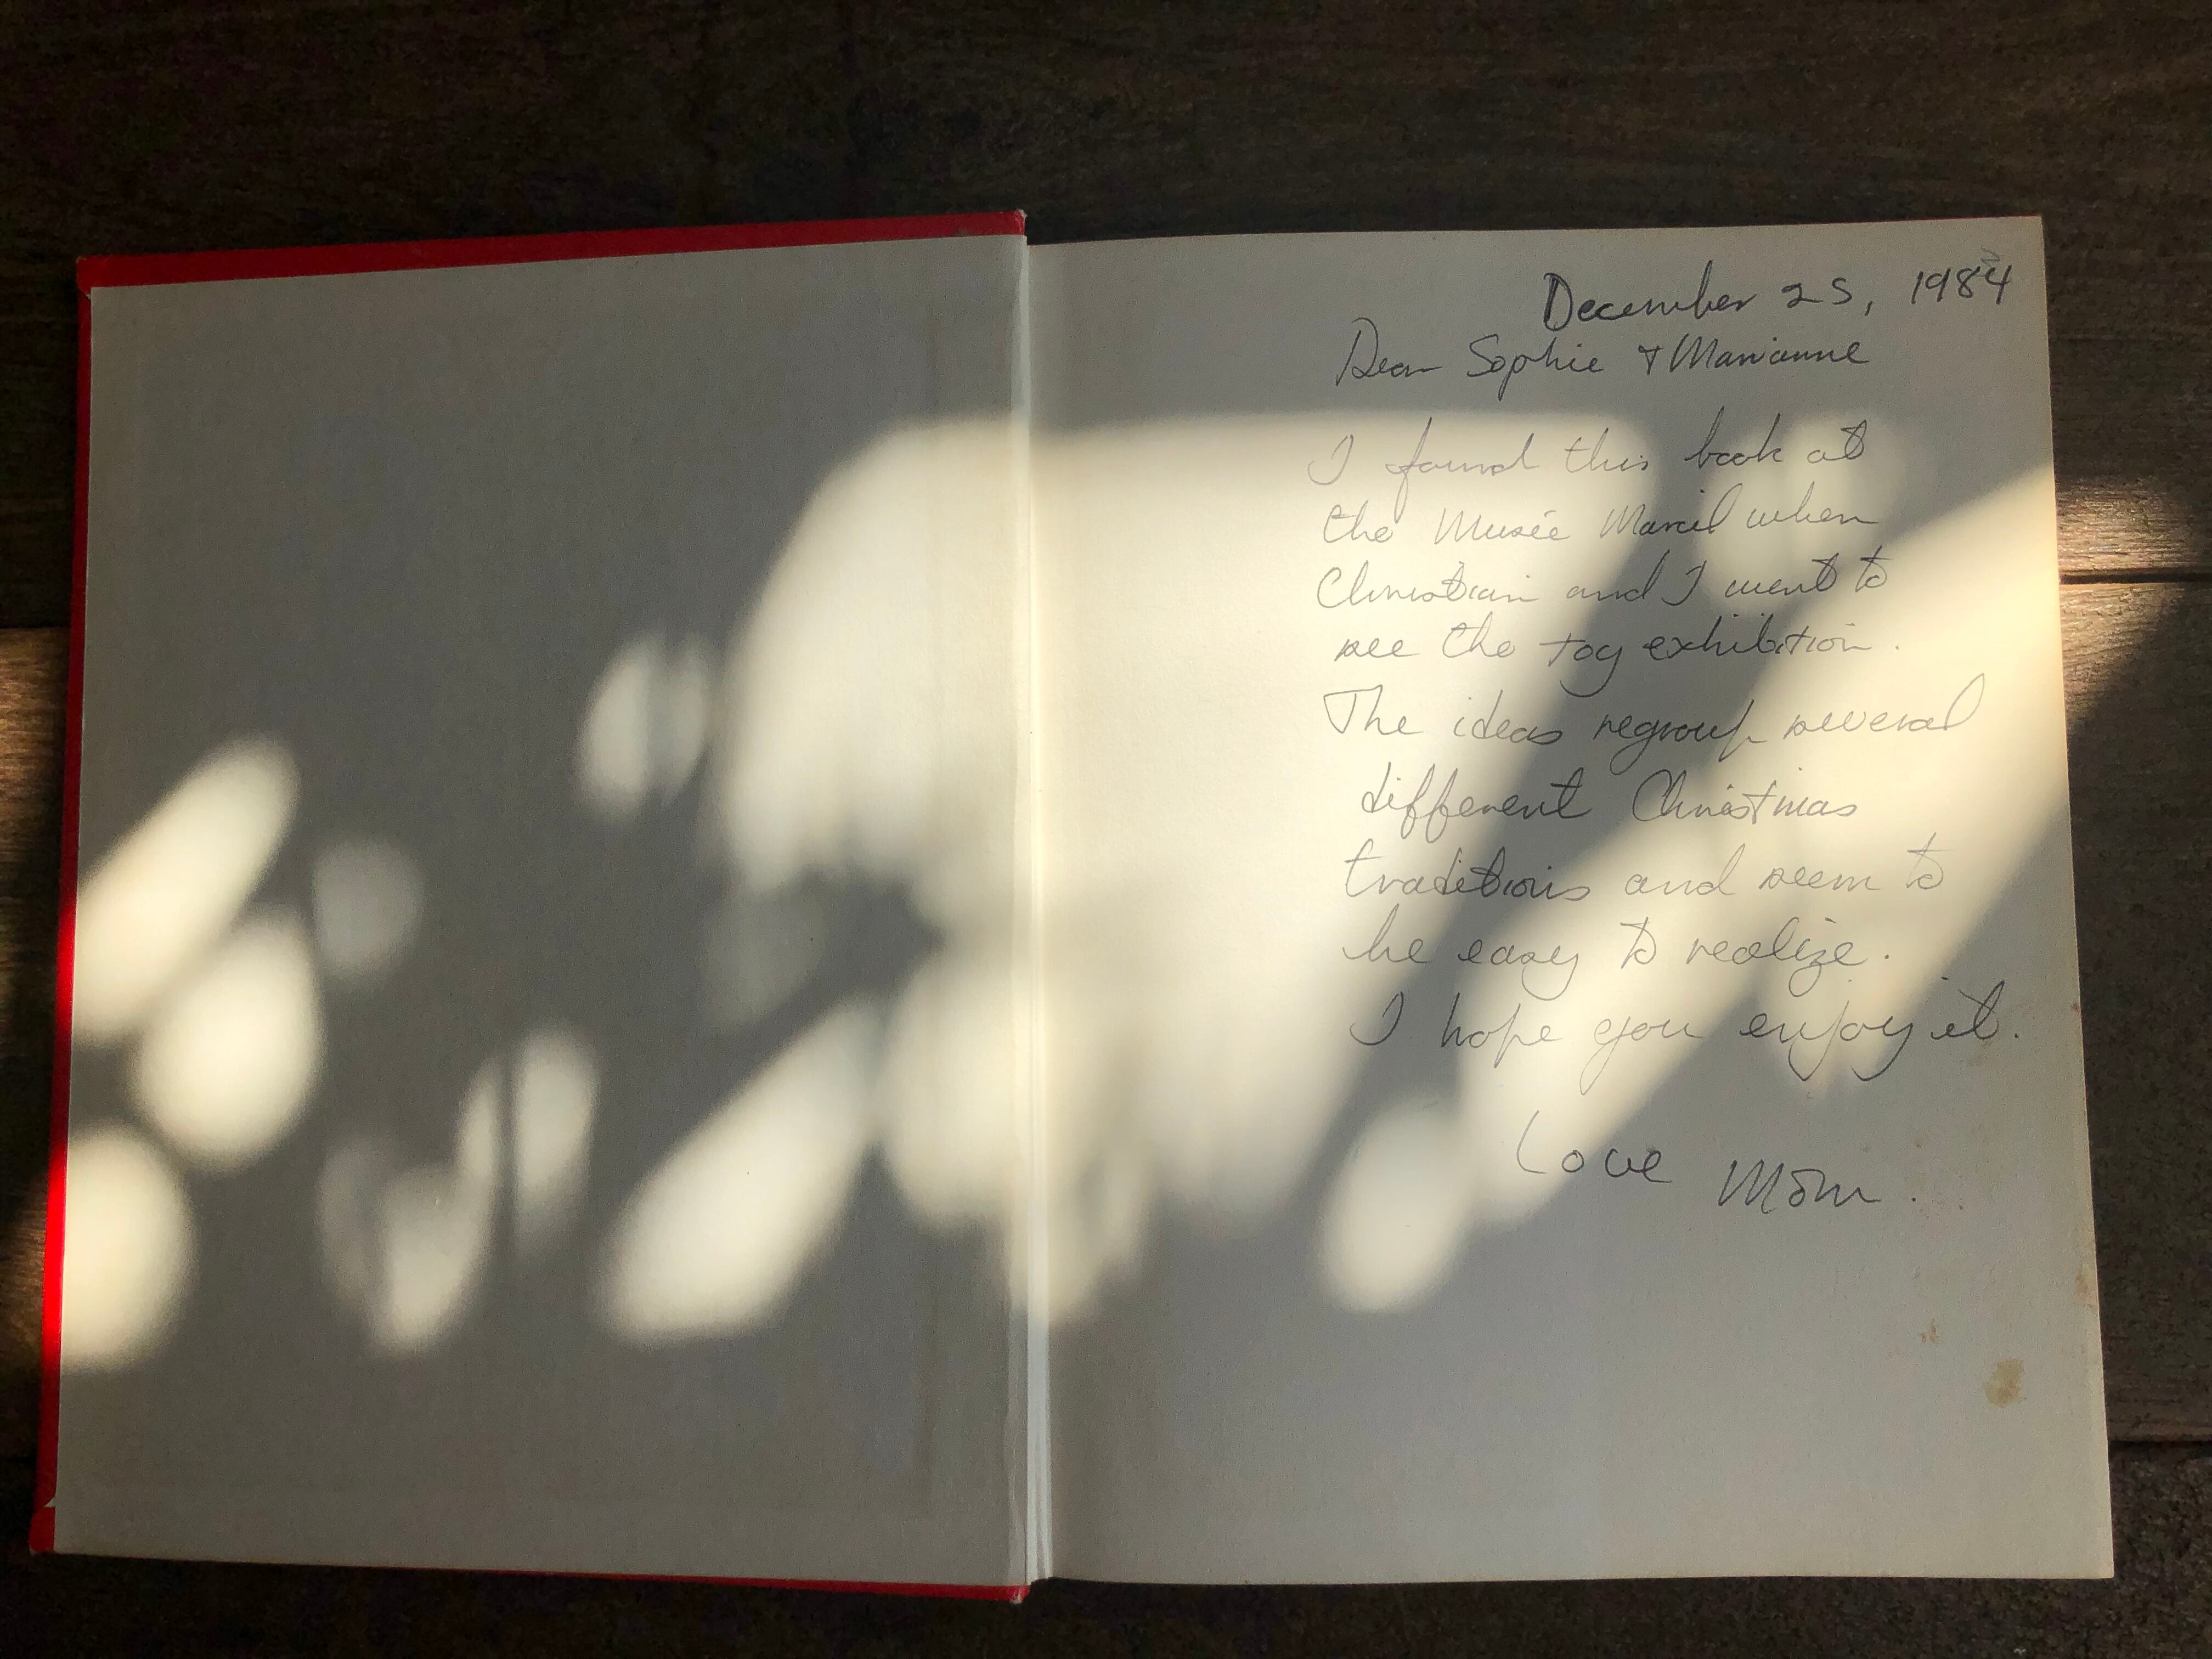 December 25, 1984
Dear Sophie & Marianne
I found this book at
the Musée Marsil when
Christian and I went to
see the toy exhibition.
The ideas regroup several
different Christmas
traditions and seem to
be easy to realize.
I hope you enjoy it.
Love Mom.